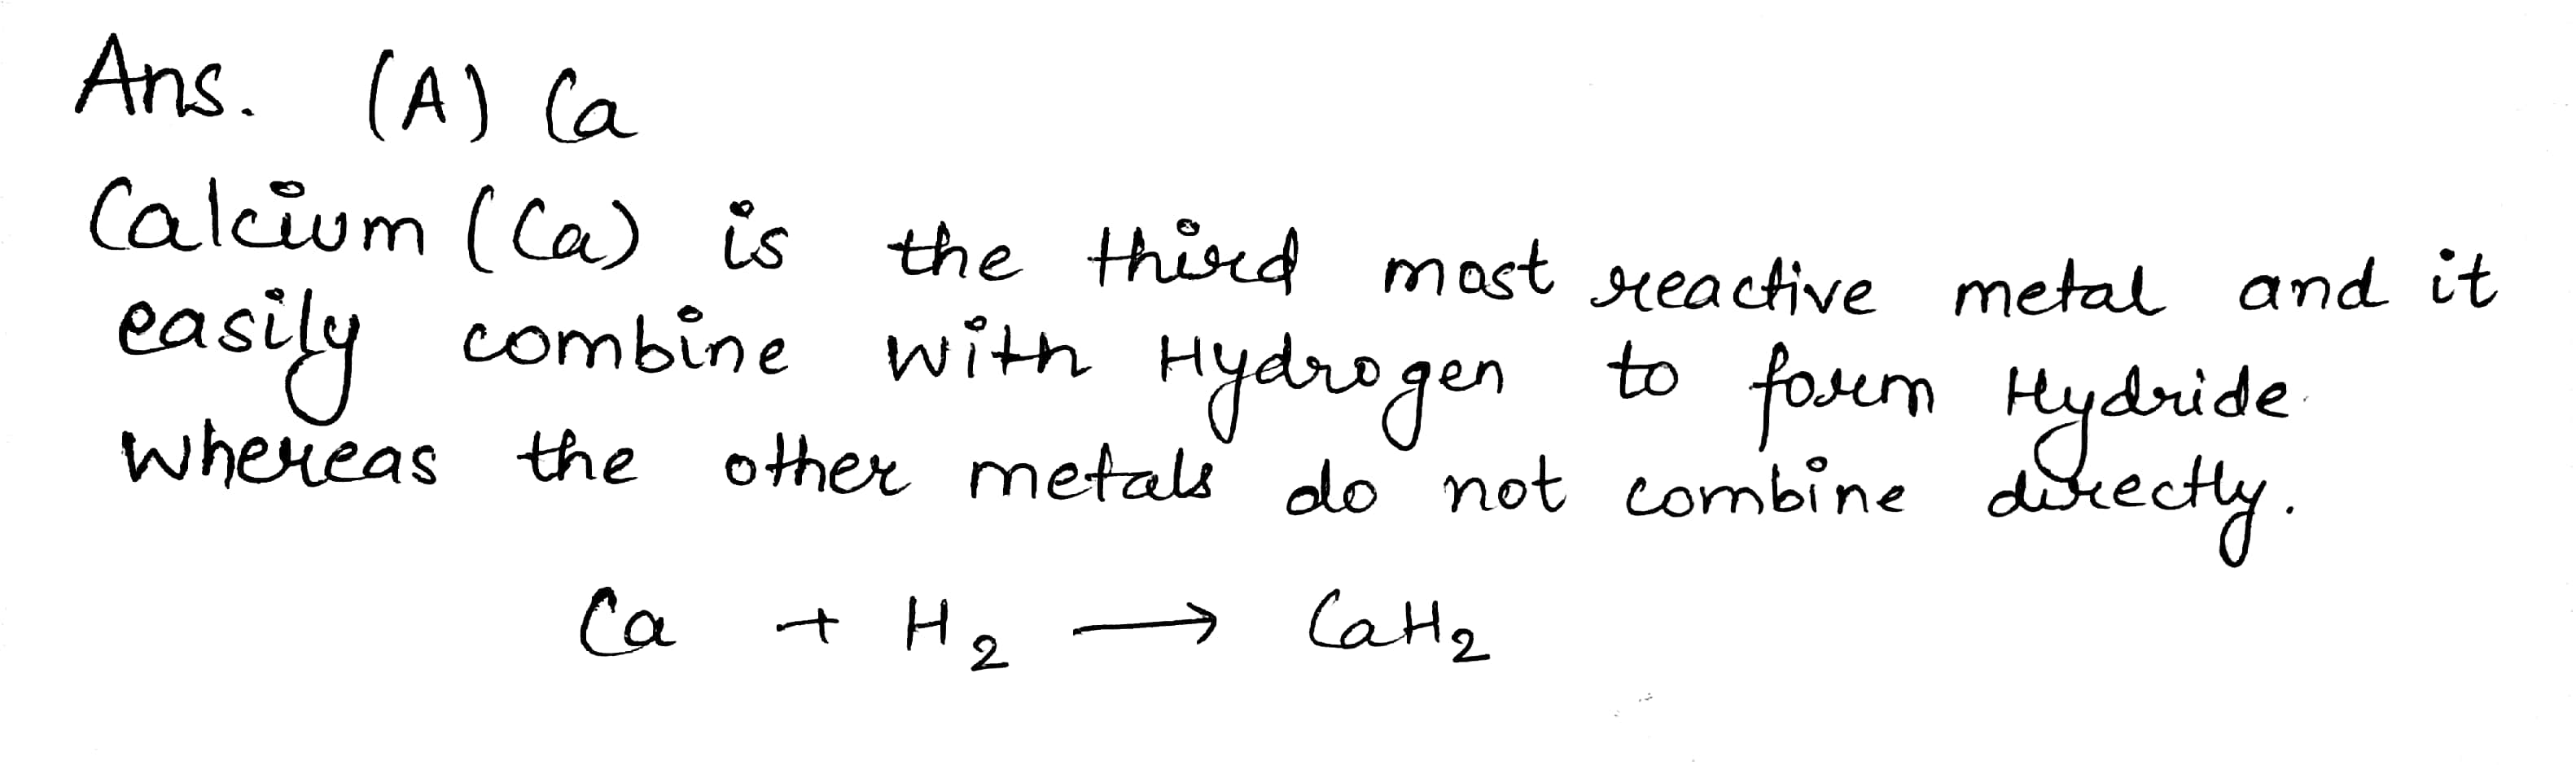 Ans. (A) Ca
Calcium (Ca) is the third most reactive metal and it
easily combine with Hydrogen to form Hydride
whereas the other metals do not combine directly.
Ca + H₂ ⟶ CaH₂